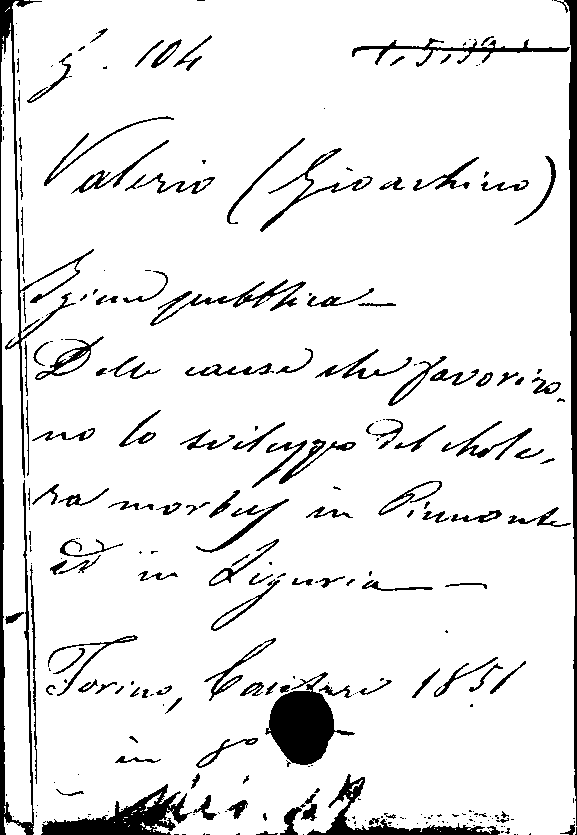 G. 104 1.5.39
Valerio (Gioachino)
Igiene pubblica —
Delle cause che favoriro-
no lo sviluppo del chole-
ra morbus in Piemonte
ed in Liguria —
Torino, 1851
in